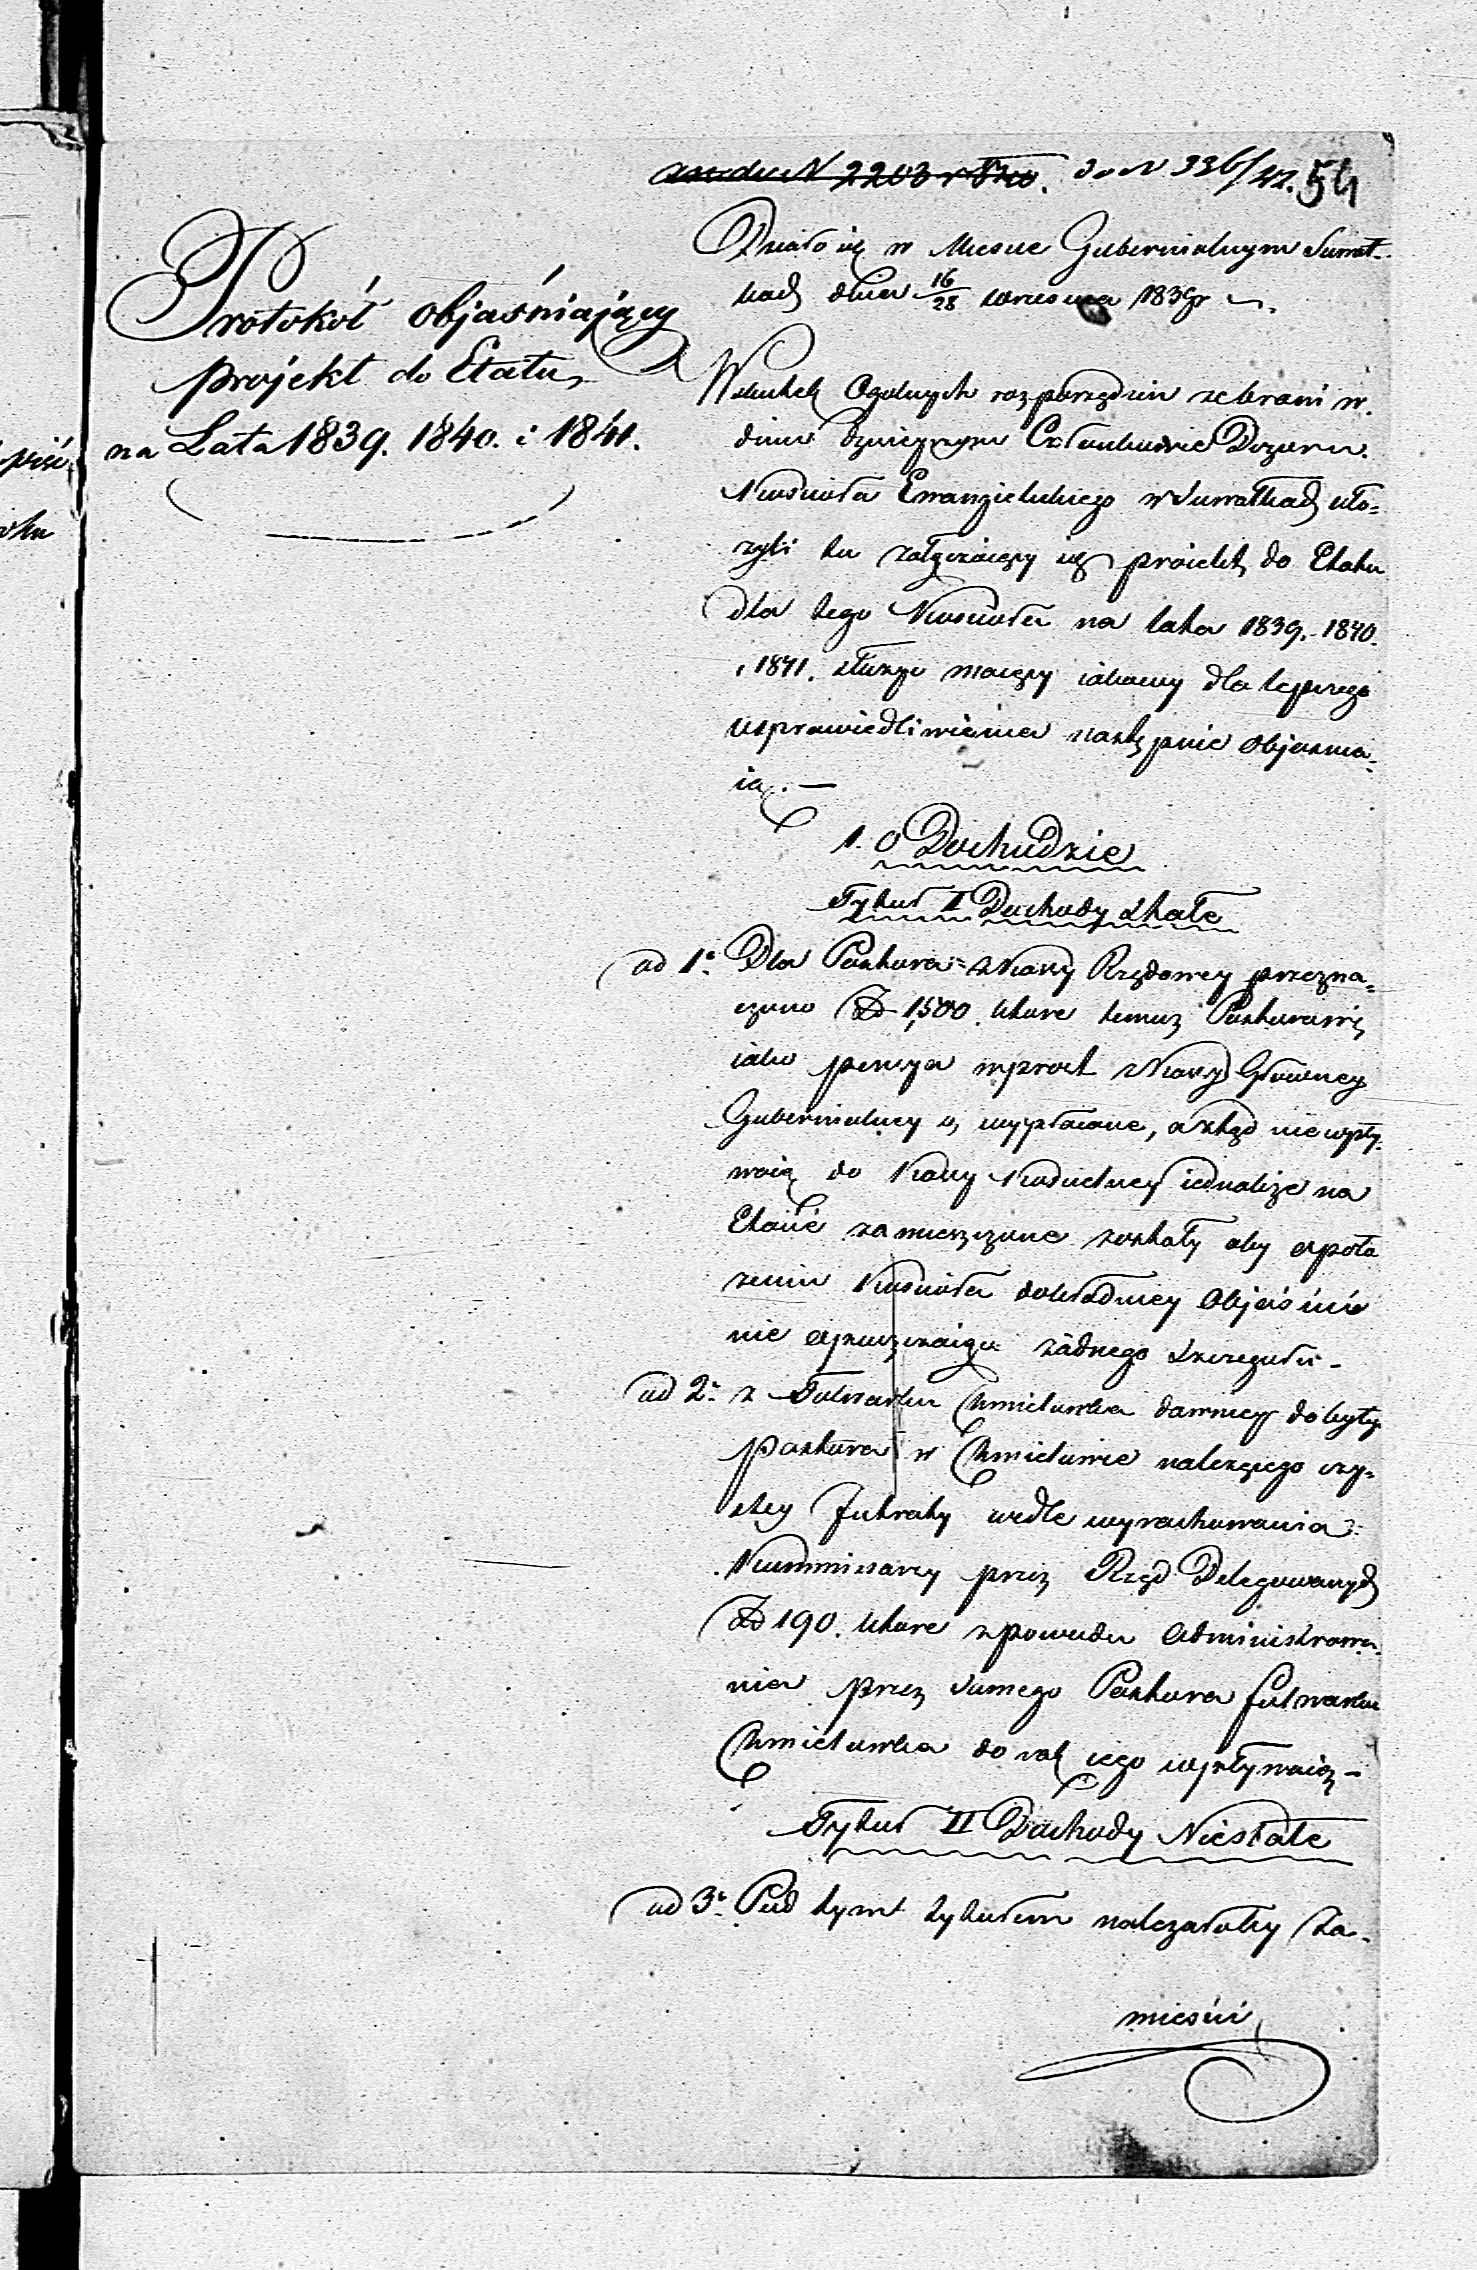 do N 336/42. 54
Protokół objaśniający
projekt do Etatu
na Lata 1839. 1840. i 1841.
Działo się w Miescie Gubernialnym Suwał-
kach dnia 16/28 Wrzesnia 1839 r
Wskutek Ogolnych rozporządzen zebrani w
dniu dzisieyszym Członkowie Dozoru
Kościoła Ewangielickiego w Suwałkach uło-
zyli tu załączaiący się proiekt do Etatu
dla tego Kościoła na lata 1839. 1840.
i 1841. służyc maiący iakowy dla lepszego
usprawiedliwienia następnie objasnia-
ią. —
1. O Dochodzie
Tytuł I Dochody stałe
ad 1o Dla Pastora z Kassy Rządowey przezna-
czono Zł 1,500. ktore temuż Pastorowi
iako pensya wprost z Kassy Głowney
Gubernialney są wypłacane, a ztąd nie wpły-
waią do Kassy Koscielney iednakże na
Etacie zamieszczone zostały aby o poło
zeniu Kościoła dokładniey objaśnić
nie opuszczaiąc żadnego szczegułu -
ad 2o z Folwarku Chmielowka dawniey do byłego
pastora w Chmielowie należącego czy-
stey Intraty wedle wyrachowania
Kommissarzy przez Rząd Delegowanych
Zł 190. ktore z powodu administrowa-
nia przez samego Pastora folwarku
Chmielowka do rąk iego wpływaią -
Tytuł II Dochody Niestałe
ad 3o Pod tym tytułem należałoby za-
mieścić